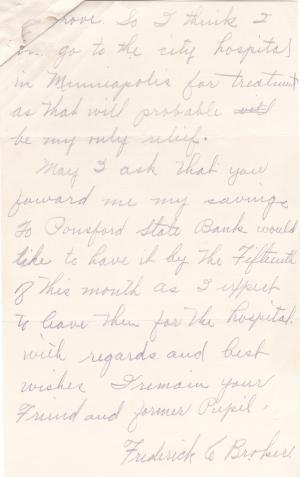 prove. So I think I
go to the city hospital
in Minneapolis for treatment
as that will probable will
be my only relief.
May I ask that you
foward me my savings
To Ponsford State Bank would
like to have it by the Fifteenth
of this month as I expect
to leave then for the hospital.
with regards and best
wishes I remain your
Friend and former Pupil.
Frederick C Broker